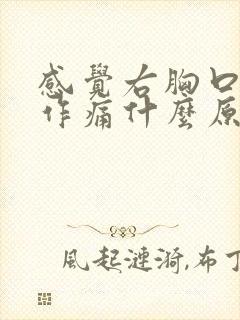 感覺右胸口
作痛什麼原
風起漣漪,布丁